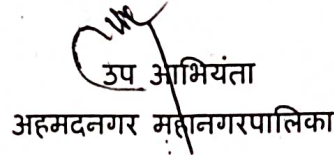 उप अभियंता
अहमदनगर महानगरपालिका